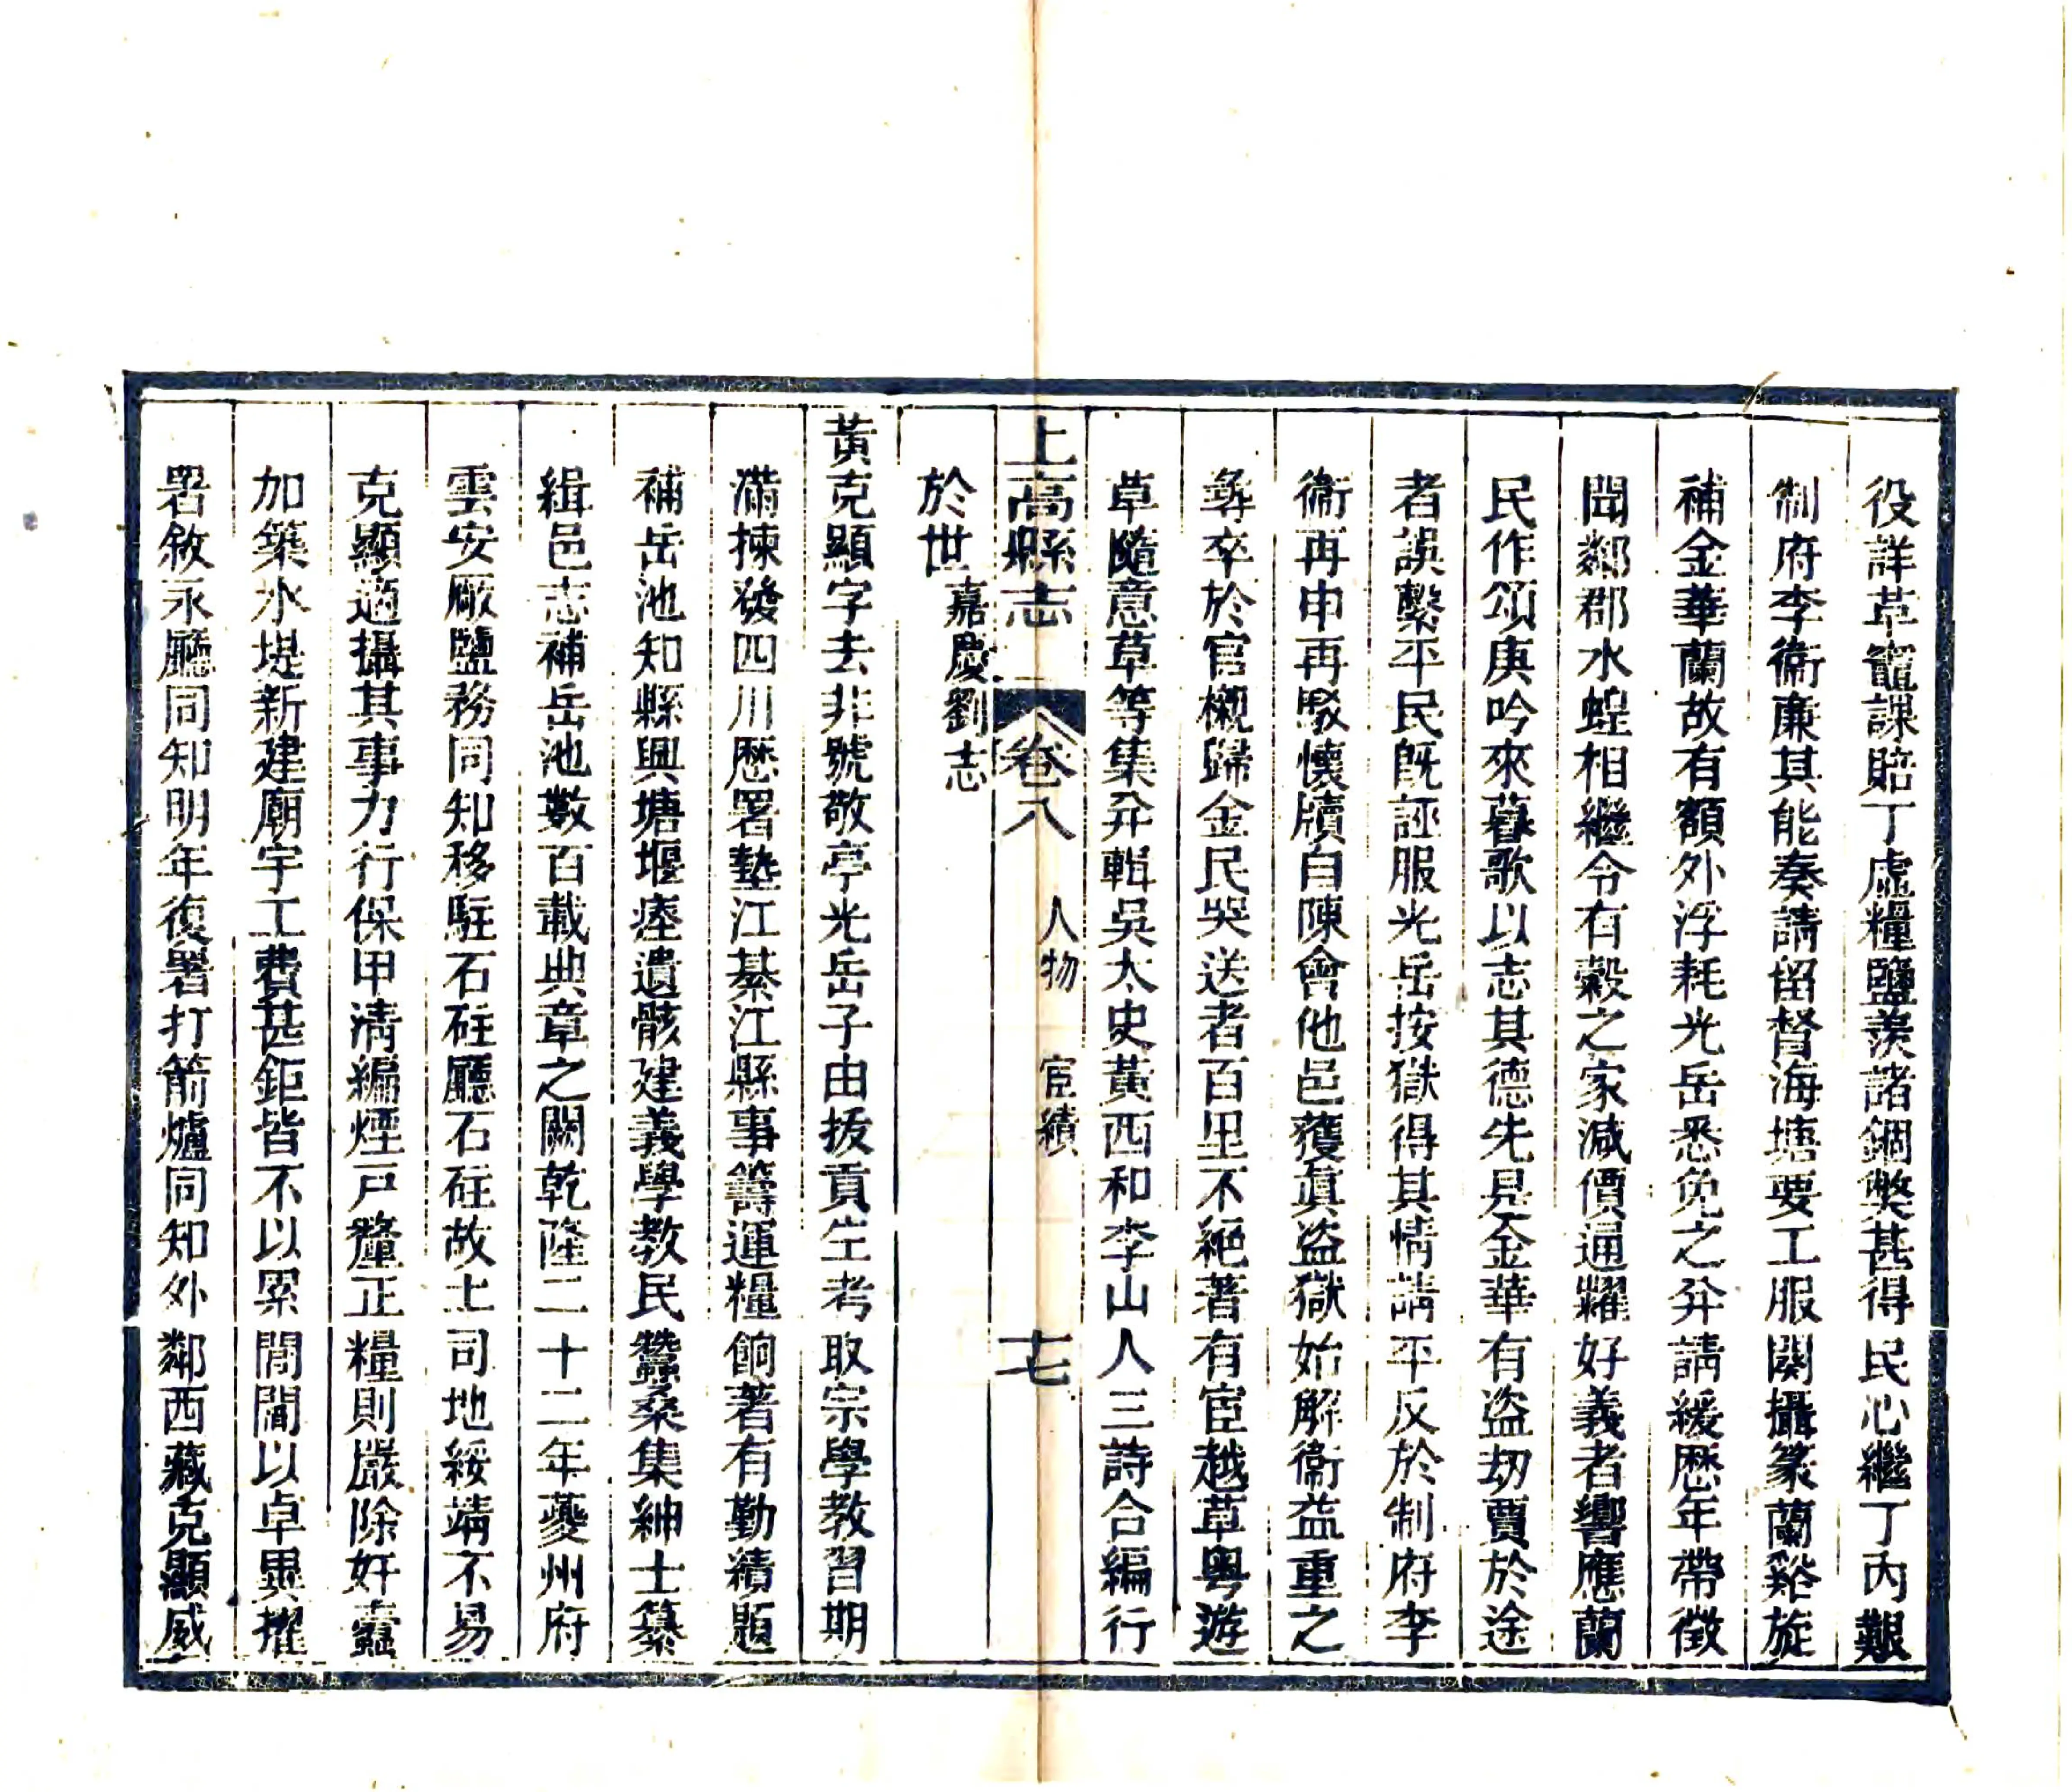 役詳革竈課賠丁虛糧鹽羨諸錮獘甚得民心繼丁內艱
制府李衞亷其能奏請留督海塘要工服闋攝篆蘭谿旋
補金華蘭故有額外浮耗光岳悉免之并請緩歷年帶徵
聞鄰郡水蝗相繼令有穀之家減價通糶好義者響應蘭
民作頌庚吟來暮歌以志其德先是金華有盜刼賈於途
者誤繫平民旣誣服光岳按獄得其情請平反於制府李
衞再申再駁懷牘自陳會他邑獲眞盜獄始解衞益重之
彝卒於官櫬歸金民哭送者百里不絕著有宦越草粵遊
草隨意草等集并輯吳太史黃西和李山人三詩合編行
於世嘉慶劉志
上高縣志 卷八 人物 宦績 十七
黃克顯字去非號敬亭光岳子由拔貢生考取宗學教習期
滿揀發四川歷署墊江綦江縣事籌運糧餉著有勤績題
補岳池知縣興塘堰瘞遺骸建義學教民蠶桑集紳士纂
緝邑志補岳池數百載典章之闕乾隆二十二年夔州府
雲安厰鹽務同知移駐石砫廳石砫故土司地綏靖不易
克顯適攝其事力行保甲淸編煙戸釐正糧則嚴除奸蠹
加築水堤新建廟宇工費甚鉅皆不以累閭閻以卓異擢
署敘永廳同知明年復署打箭爐同知外鄰西藏克顯威